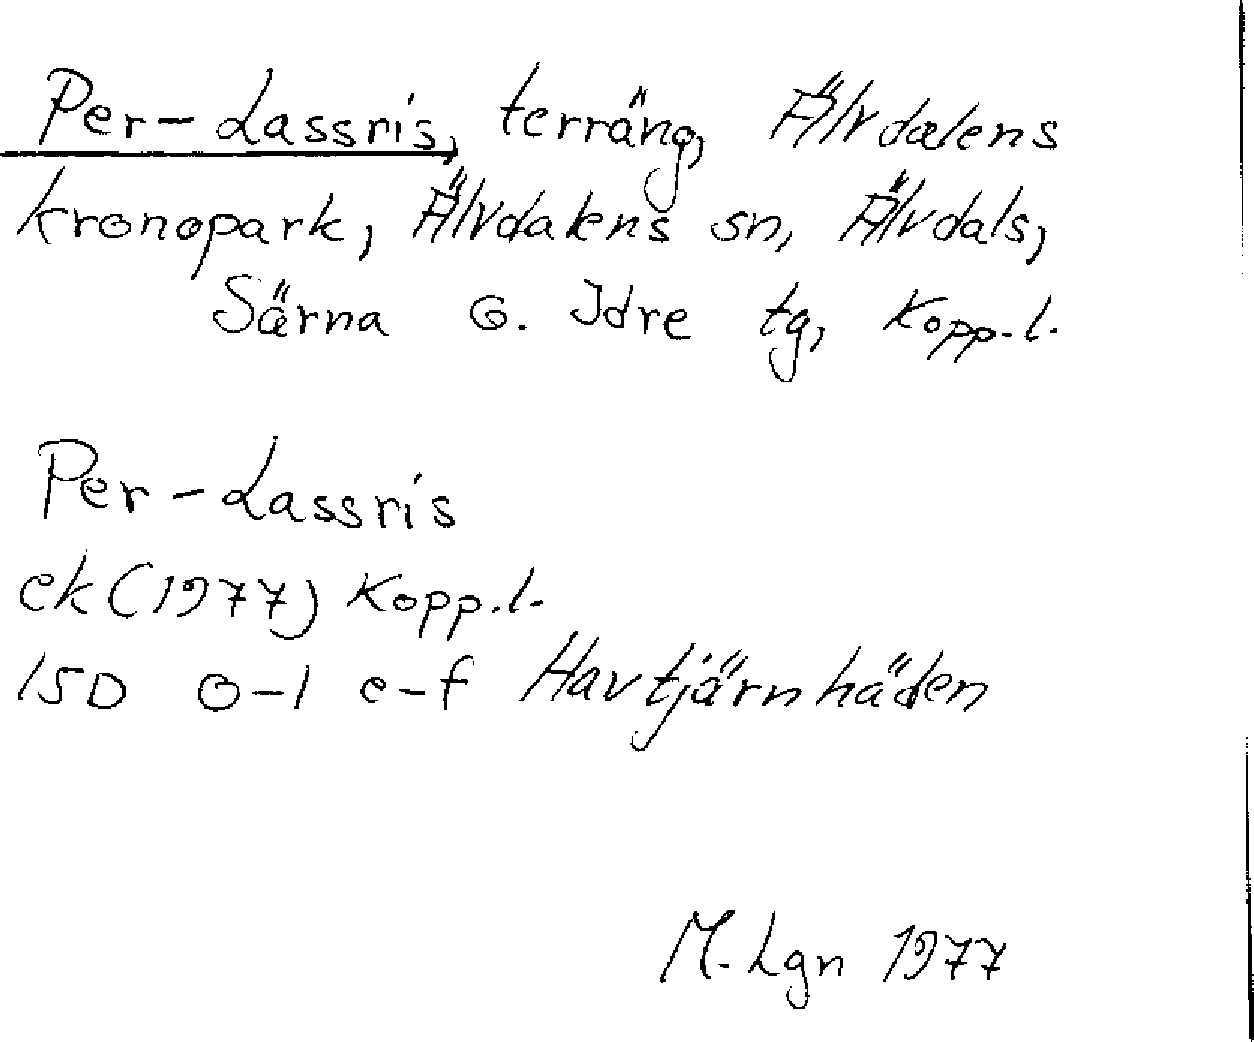 Per-Lassris, terräng, Älvdalens
kronopark, Älvdalens sn, Älvdals,
Särna o. Idre tg, Kopp.l.
Per-Lassris
ek(1977) Kopp.l.
15D 0-1 e-f Havtjärnhäden
M.Lgn 1977